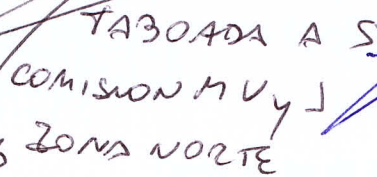 TABOADA A S
COMISION M V y J
ZONA NORTE